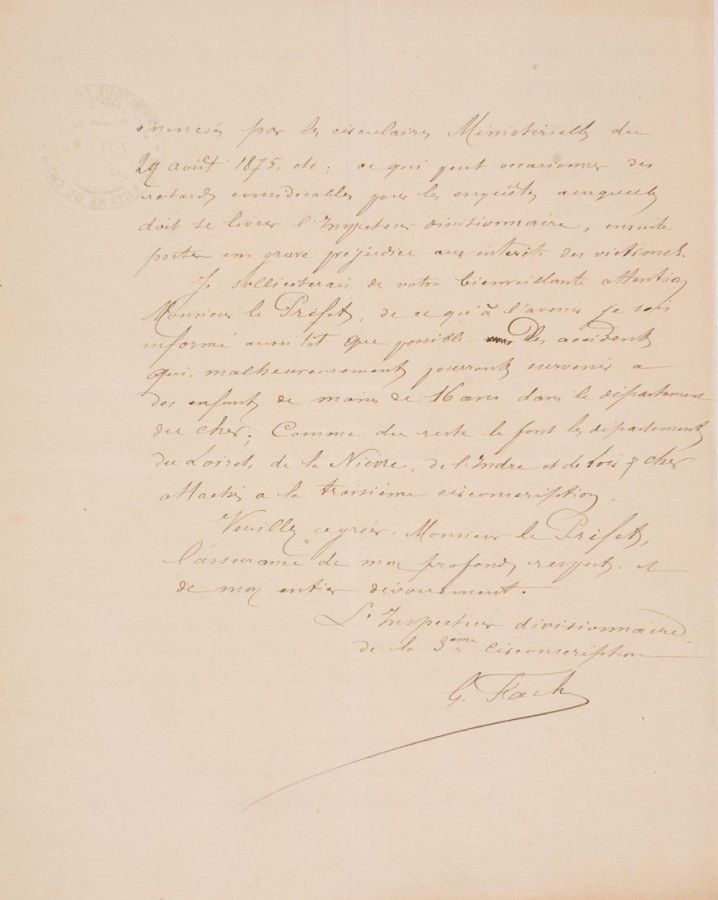 énoncées par les circulaires Ministerielles du
29 août 1875, etc; ce qui peut occasionner des
retards considérables pour les enquêtes auxquelles
doit se livrer l'Inspecteur divisionnaire, ensuite
porter un grave préjudice aux intérêts des victimes.
Je solliciterais de votre bienveillante attention
Monsieur le Préfet, de ce qu'à l'avenir je sois
informé aussitot que possible des accidents
qui malheureusement pourront survenir a
des enfants de moins de 16 ans dans le département
du Cher, Comme du reste le font les départements
du Loiret, de la Nievre, de l'Indre et de Loir & Cher
attachés a la troisième circonscription.
Veuillez agréer, Monsieur le Préfet,
l'assurance de mon profond respect et
de mon entier dévouement.
L'Inspecteur divisionnaire
de la 3ème circonscription
G. Flach